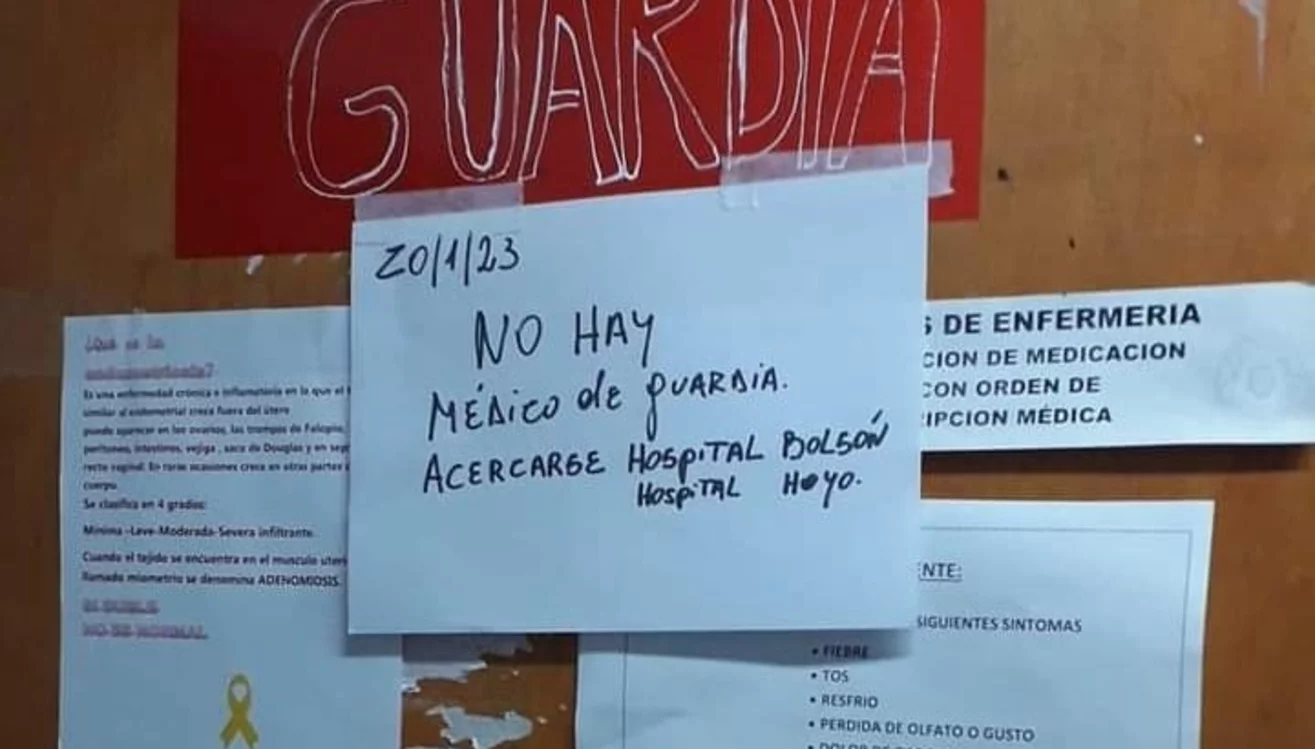 GUARDIA
20/1/23
NO HAY
MÉDICO de guARDIA.
ACERCARSE HOSPITAL BOLSÓN
HOSPITAL HOYO.
¿Qué es la
endometriosis?
Es una enfermedad crónica e inflamatoria en la que el
similar al endometrial crece fuera del útero
puede aparecer en los ovarios, las trompas de Falopio,
peritoneo, intestinos, vejiga , saco de Douglas y en
recto vaginal. En raras ocasiones crece en otras partes
cuerpo.
Se clasifica en 4 grados:
Mínima -Leve-Moderada-Severa infiltrante.
Cuando el tejido se encuentra en el musculo
llamado miometrio se denomina ADENOMIOSIS.
SI DUELE
NO ES NORMAL
S DE ENFERMERIA
CION DE MEDICACION
CON ORDEN DE
IPCION MÉDICA
ENTE:
SIGUIENTES SINTOMAS
• FIEBRE
• TOS
• RESFRIO
• PERDIDA DE OLFATO O GUSTO
• DOLOR DE